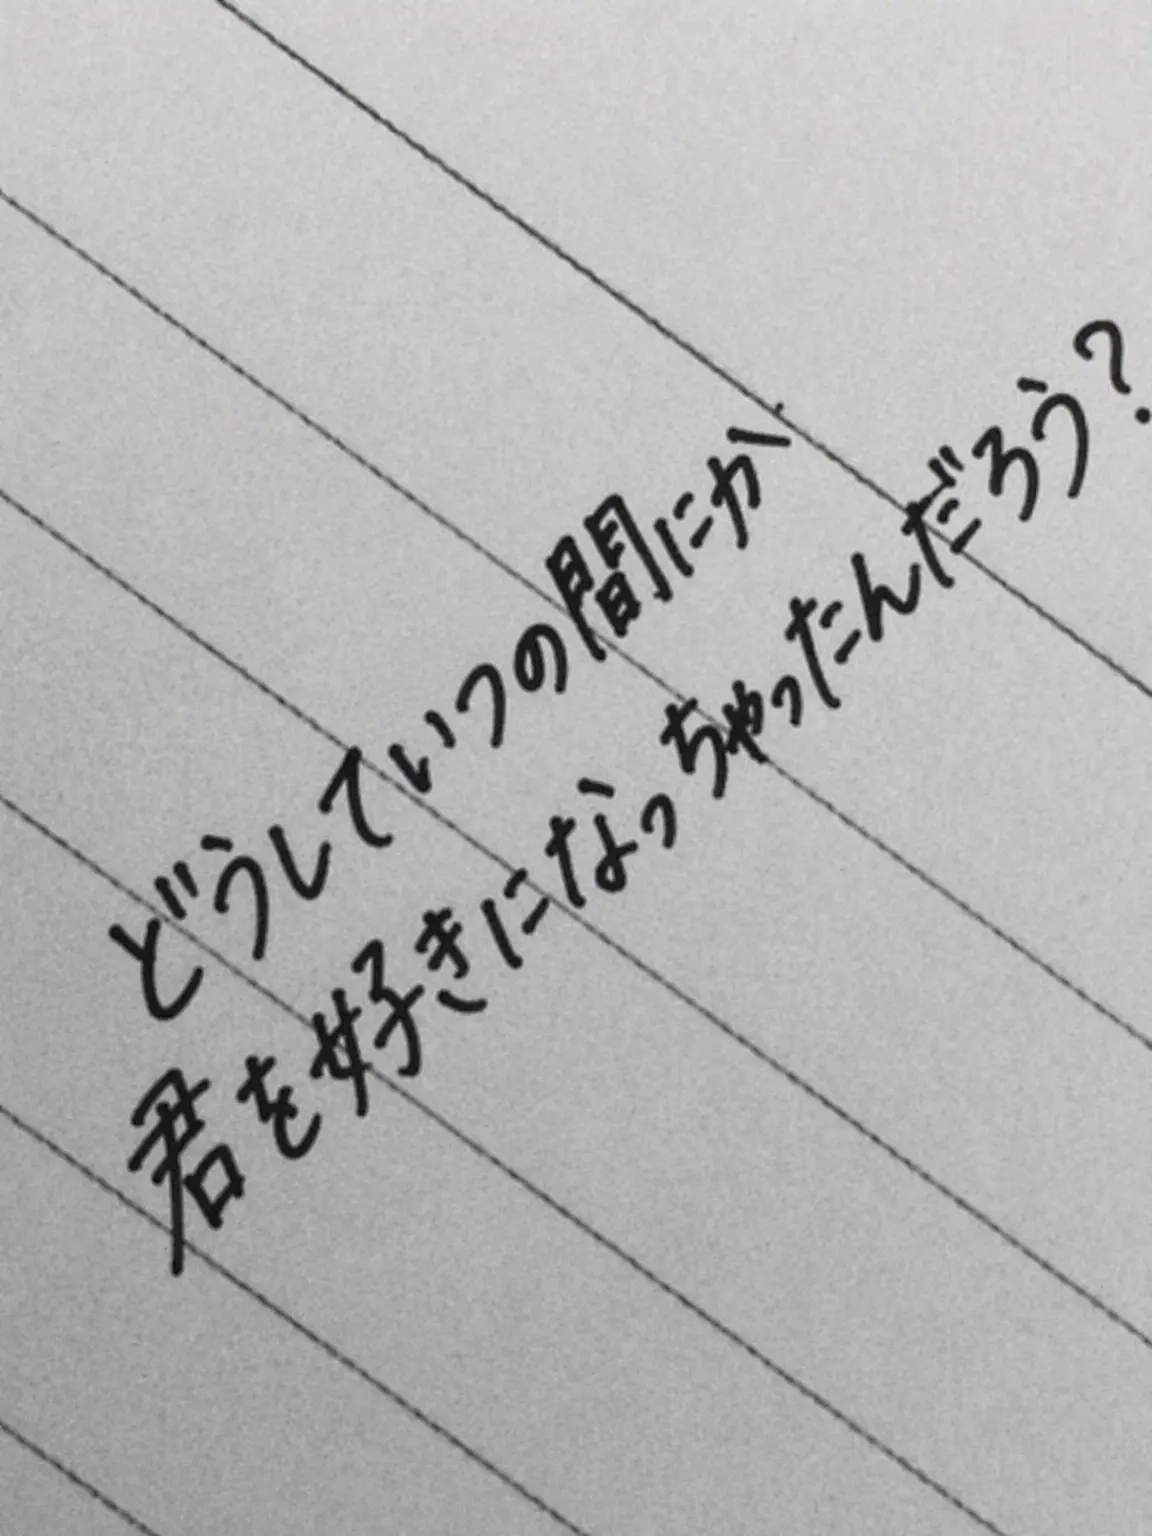 どうしていつの間にか
君を好きになっちゃったんだろう？